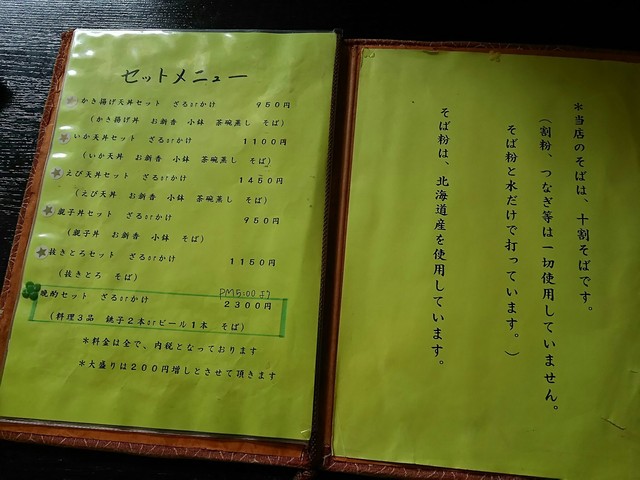 セットメニュー
かき揚げ天丼セット ざるorかけ 950円
(かき揚げ丼 お新香 小鉢 茶碗蒸し そば)
いか天丼セット ざるorかけ 1100円
(いか天丼 お新香 小鉢 茶碗蒸し そば)
えび天丼セット ざるorかけ 1450円
(えび天丼 お新香 小鉢 茶碗蒸し そば)
親子丼セット ざるorかけ 950円
(親子丼 お新香 小鉢 そば)
抜きとろセット ざるorかけ 1150円
(抜きとろ そば)
PM5:00より
晩酌セット ざるorかけ 2300円
(料理3品 銚子2本orビール1本 そば)
*料金は全て、内税となっております
*大盛りは200円増しとさせて頂きます
*当店のそばは、十割そばです。
(割粉、つなぎ等は一切使用していません。
そば粉と水だけで打っています。)
そば粉は、北海道産を使用しています。